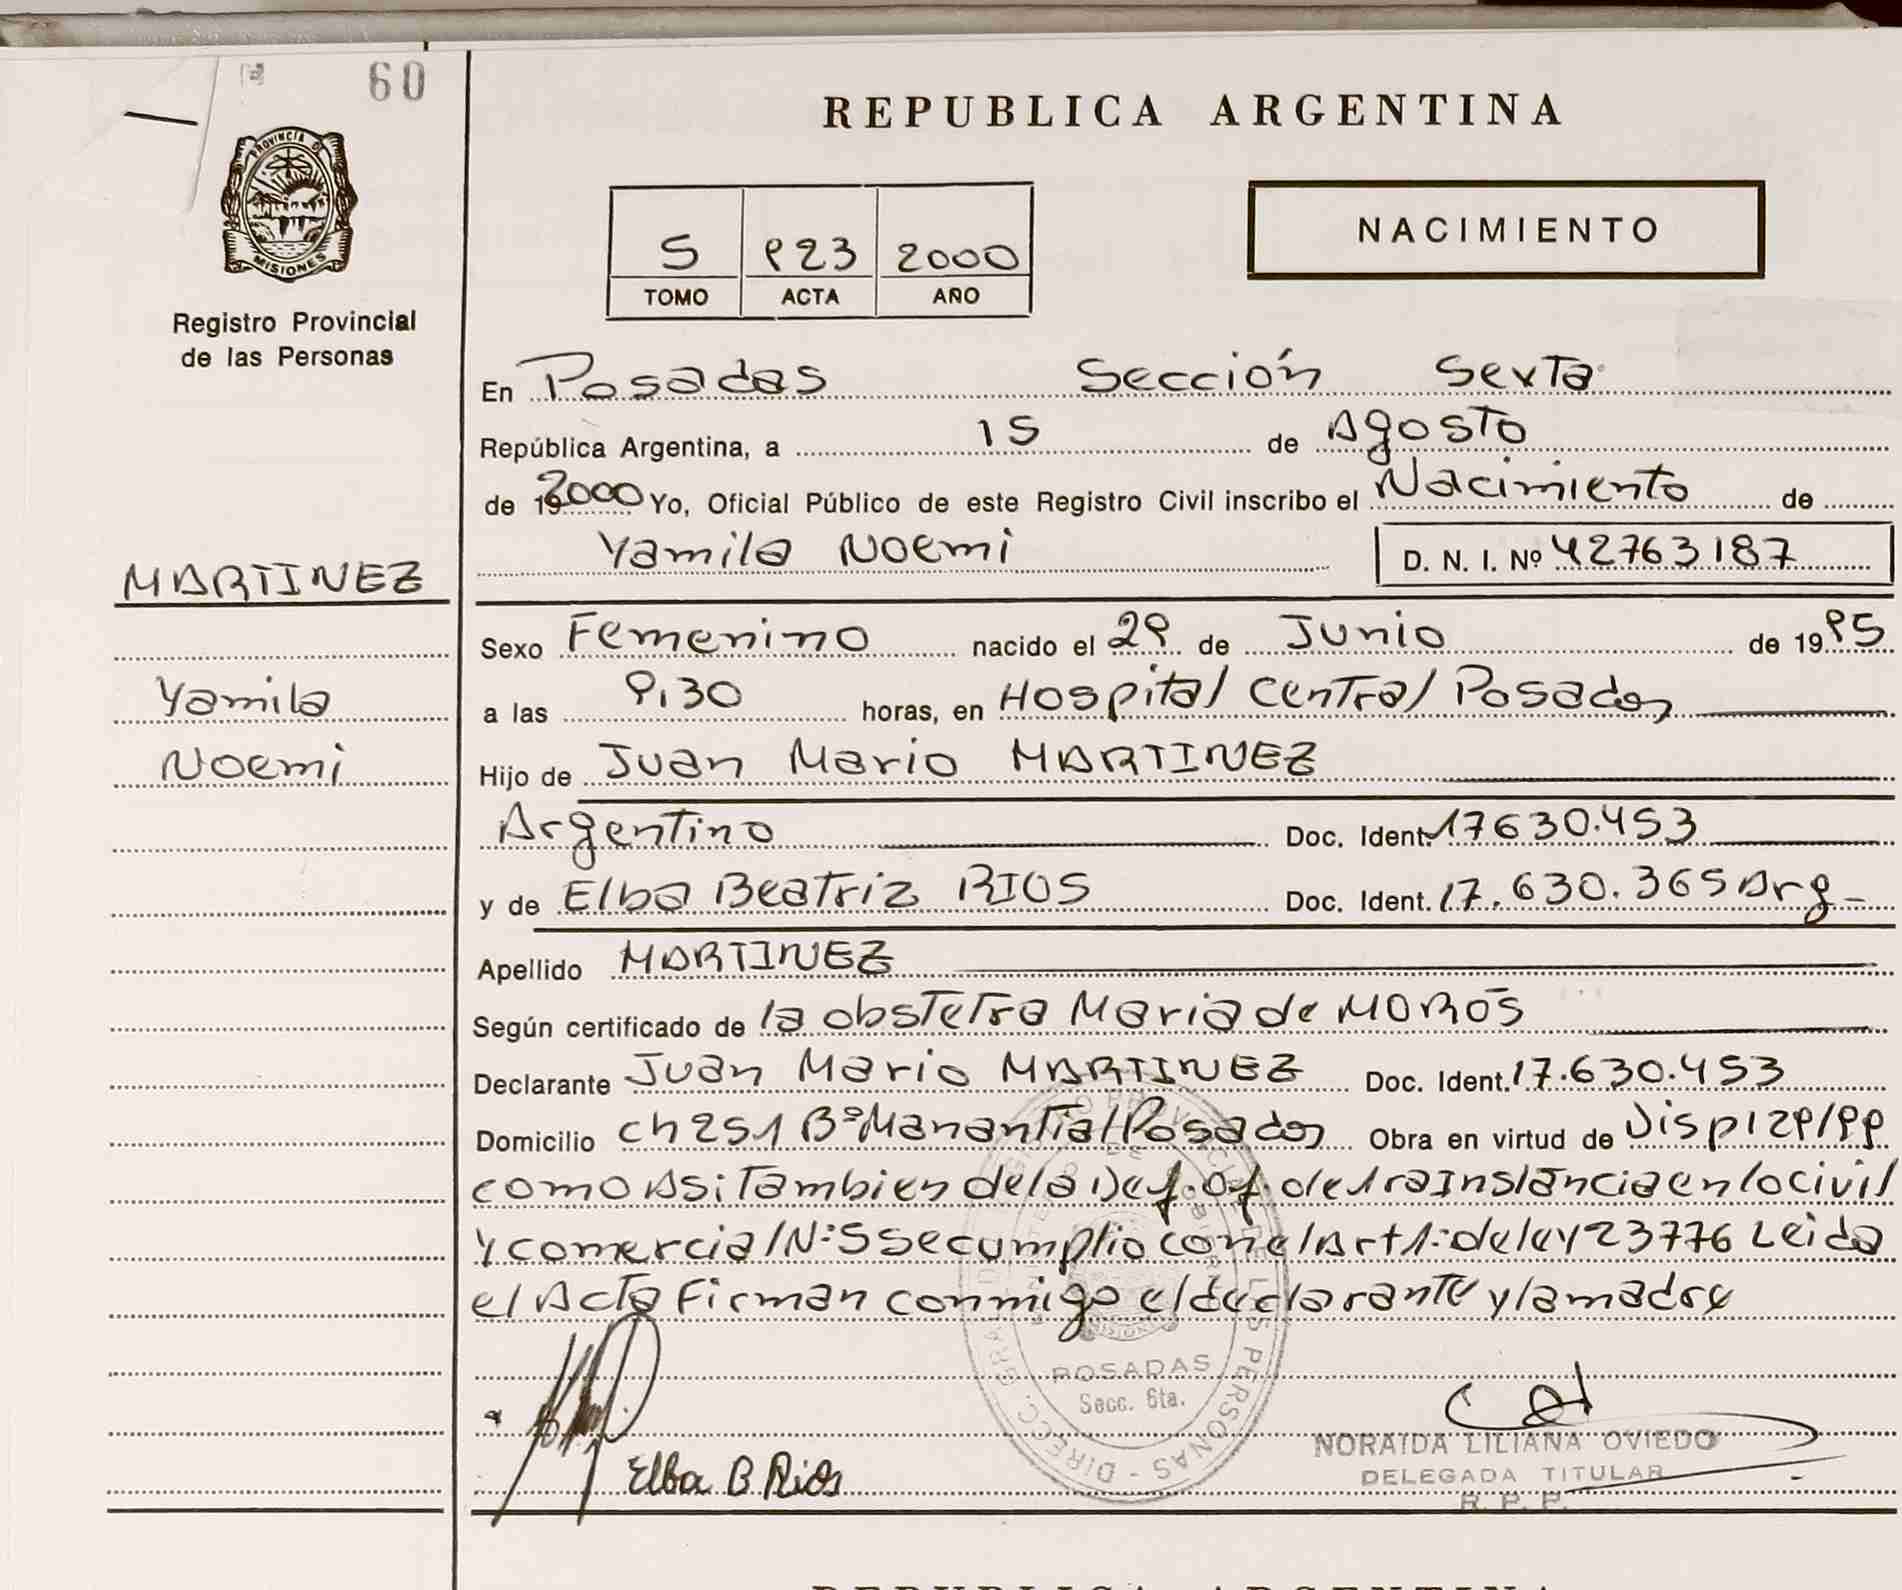 60
PROVINCIA D
MISIONES
Registro Provincial
de las Personas
MARTINEZ
Yamila
Noemi
REPUBLICA ARGENTINA
NACIMIENTO
5 923 2000
TOMO ACTA AÑO
En Posadas Sección Sexta
República Argentina, a 15 de Agosto
de 192000 Yo, Oficial Público de este Registro Civil inscribo el Nacimiento de
Yamila Noemi D. N. I. Nº 42763187
Sexo Femenino nacido el 29 de Junio de 1995
a las 9,30 horas, en Hospital Central Posadas
Hijo de Juan Mario MARTINEZ
Argentino Doc. Ident. 17630.453
y de Elba Beatriz RIOS Doc. Ident. 17.630.365 Arg
Apellido MARTINEZ
Según certificado de la obstetra Maria de MOROS
Declarante Juan Mario MARTINEZ Doc. Ident. 17.630.453
Domicilio ch 251 Bº Manantial Posadas Obra en virtud de Disp 129/99
como Asi Tambien de la Def. Of. de 1ra Instancia en lo civil
y comercial Nº 5 se cumplio con el Art 1: de ley 23776 Leida
el Acta Firman conmigo el declarante y la madre
POSADAS
Secc. 6ta.
Elba B Rios
NORAIDA LILIANA OVIEDO
DELEGADA TITULAR
R. P. P.